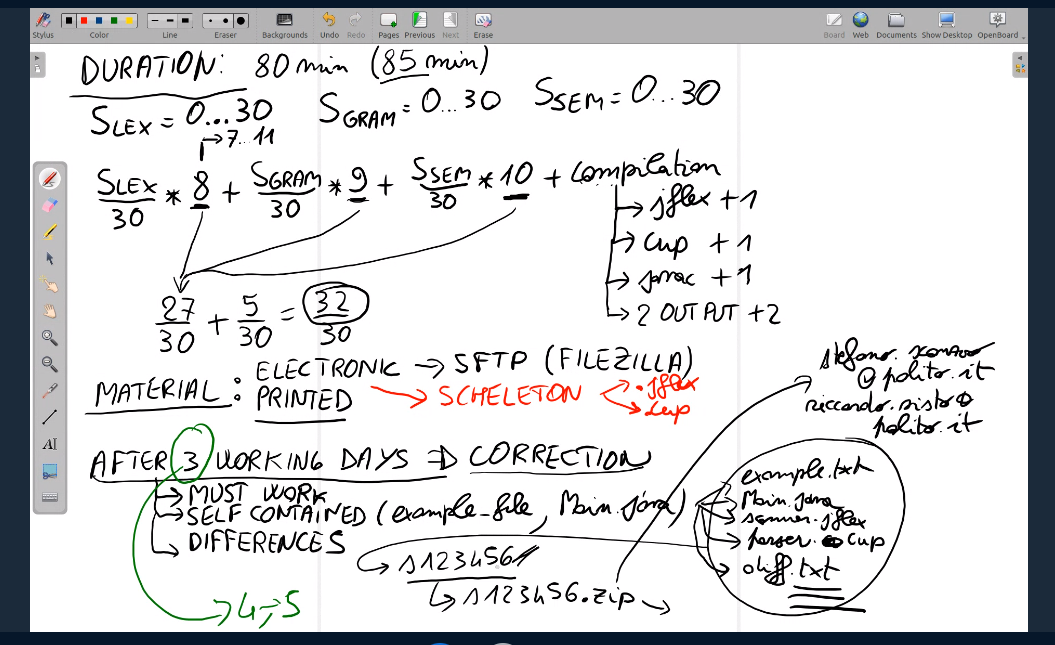 Stylus Color Line Eraser Backgrounds Undo Redo Pages Previous Next Erase Board Web Documents Show Desktop OpenBoard
DURATION: 80 min (85 min)
SLEX = 0...30 SGRAM = 0...30 SSEM = 0...30
→ 7...11
SLEX/30 * 8 + SGRAM/30 * 9 + SSEM/30 * 10 + Compilation
→ jflex + 1
→ Cup + 1
→ javac + 1
→ 2 OUTPUT + 2
27/30 + 5/30 = 32/30
MATERIAL: ELECTRONIC → SFTP (FILEZILLA)
PRINTED → SCHELETON → .jflex
→ .cup
stefano.
@polito.it
riccardo.sisto@
polito.it
AFTER 3 WORKING DAYS ⇒ CORRECTION
→ MUST WORK
→ SELF CONTAINED (example_file, Main.java)
→ DIFFERENCES
example.txt
Main.java
scanner.jflex
parser.cup
diff.txt
→ s123456/
→ s123456.zip →
→ 4,5
AI